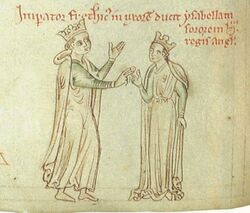 Imp̄ator fr̄ethic' in uxorē ducit ysabellam
sororem h̄
regis angl'